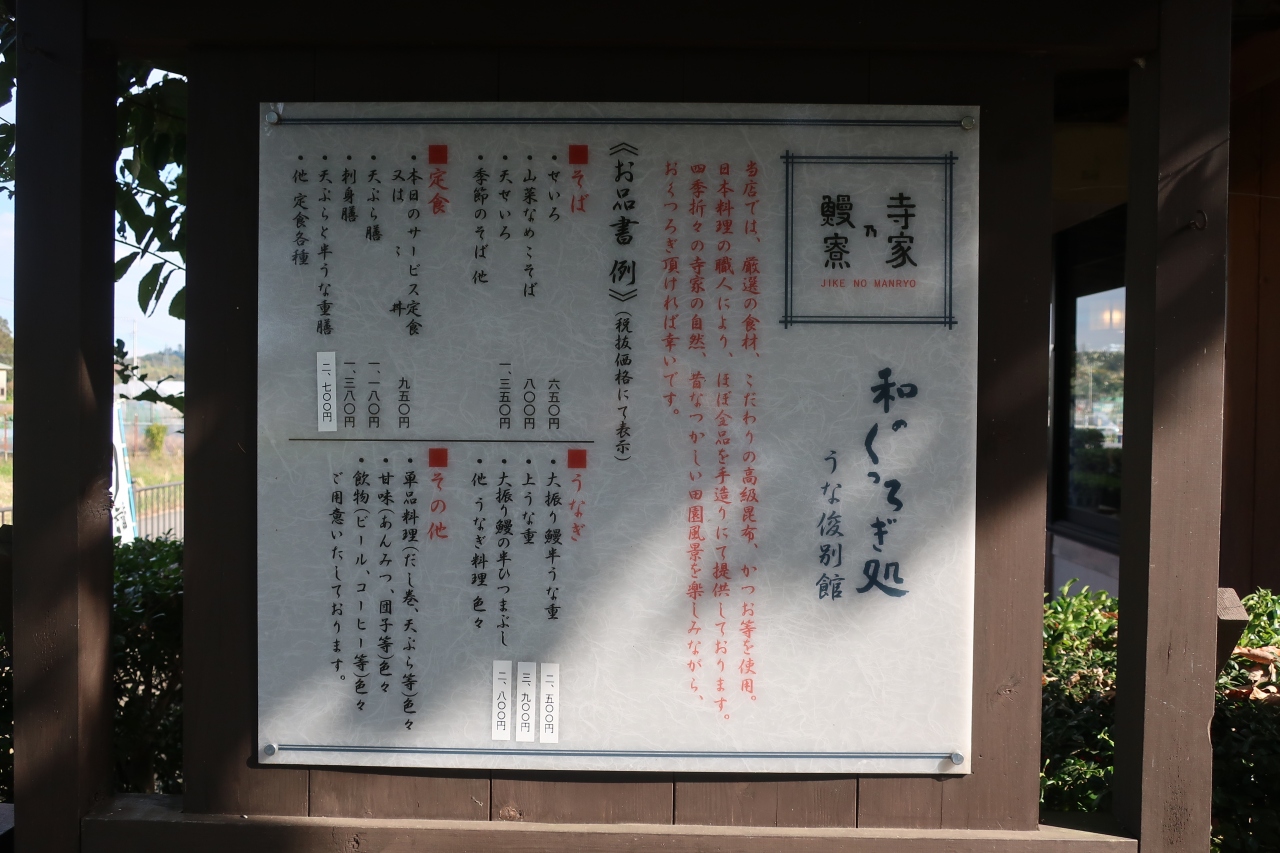 寺家
乃
鰻寮
JIKE NO MANRYO
和のくつろぎ処
うな俊別館
当店では、厳選の食材、こだわりの高級昆布、かつお等を使用。
日本料理の職人により、ほぼ全品を手造りにて提供しております。
四季折々の寺家の自然、昔なつかしい田園風景を楽しみながら、
おくつろぎ頂ければ幸いです。
《お品書 例》(税抜価格にて表示)
■そば
・せいろ 六五〇円
・山菜なめこそば 八〇〇円
・天せいろ 一、三五〇円
・季節のそば 他
■定食
・本日のサービス定食
又は 〻 丼 九五〇円
・天ぷら膳 一、一八〇円
・刺身膳 一、三八〇円
・天ぷらと半うな重膳 二、七〇〇円
・他 定食各種
■うなぎ
・大振り鰻半うな重 二、五〇〇円
・上うな重 三、九〇〇円
・大振り鰻の半ひつまぶし 二、八〇〇円
・他 うなぎ料理 色々
■その他
・単品料理(だし巻、天ぷら等)色々
・甘味(あんみつ、団子等)色々
・飲物(ビール、コーヒー等)色々
ご用意いたしております。